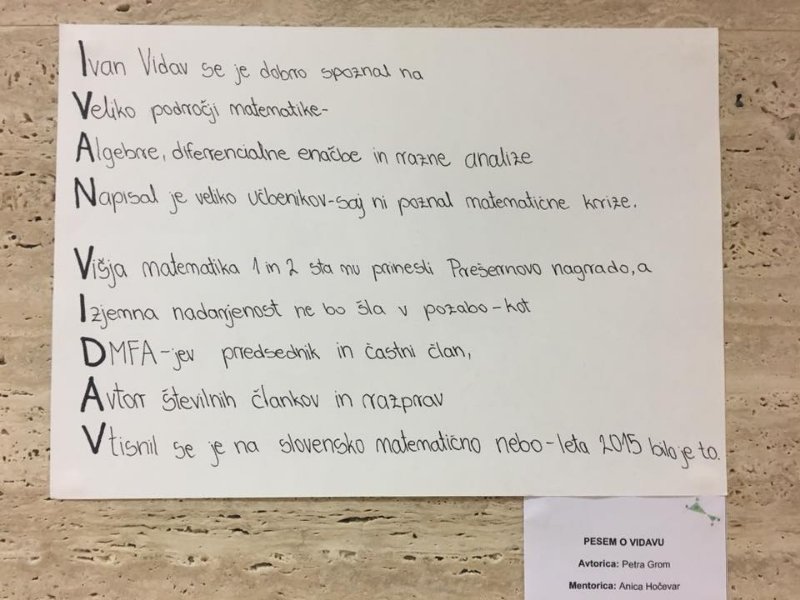 Ivan Vidav se je dobro spoznal na
Veliko področji matematike-
Algebre, diferencialne enačbe in razne analize
Napisal je veliko učbenikov-saj ni poznal matematične krize.
Višja matematika 1 in 2 sta mu prinesli Prešernovo nagrado, a
Izjemna nadarjenost ne bo šla v pozabo-kot
DMFA-jev predsednik in častni član,
Avtor številnih člankov in razprav
Vtisnil se je na slovensko matematično nebo-leta 2015 bilo je to.
PESEM O VIDAVU
Avtorica: Petra Grom
Mentorica: Anica Hočevar